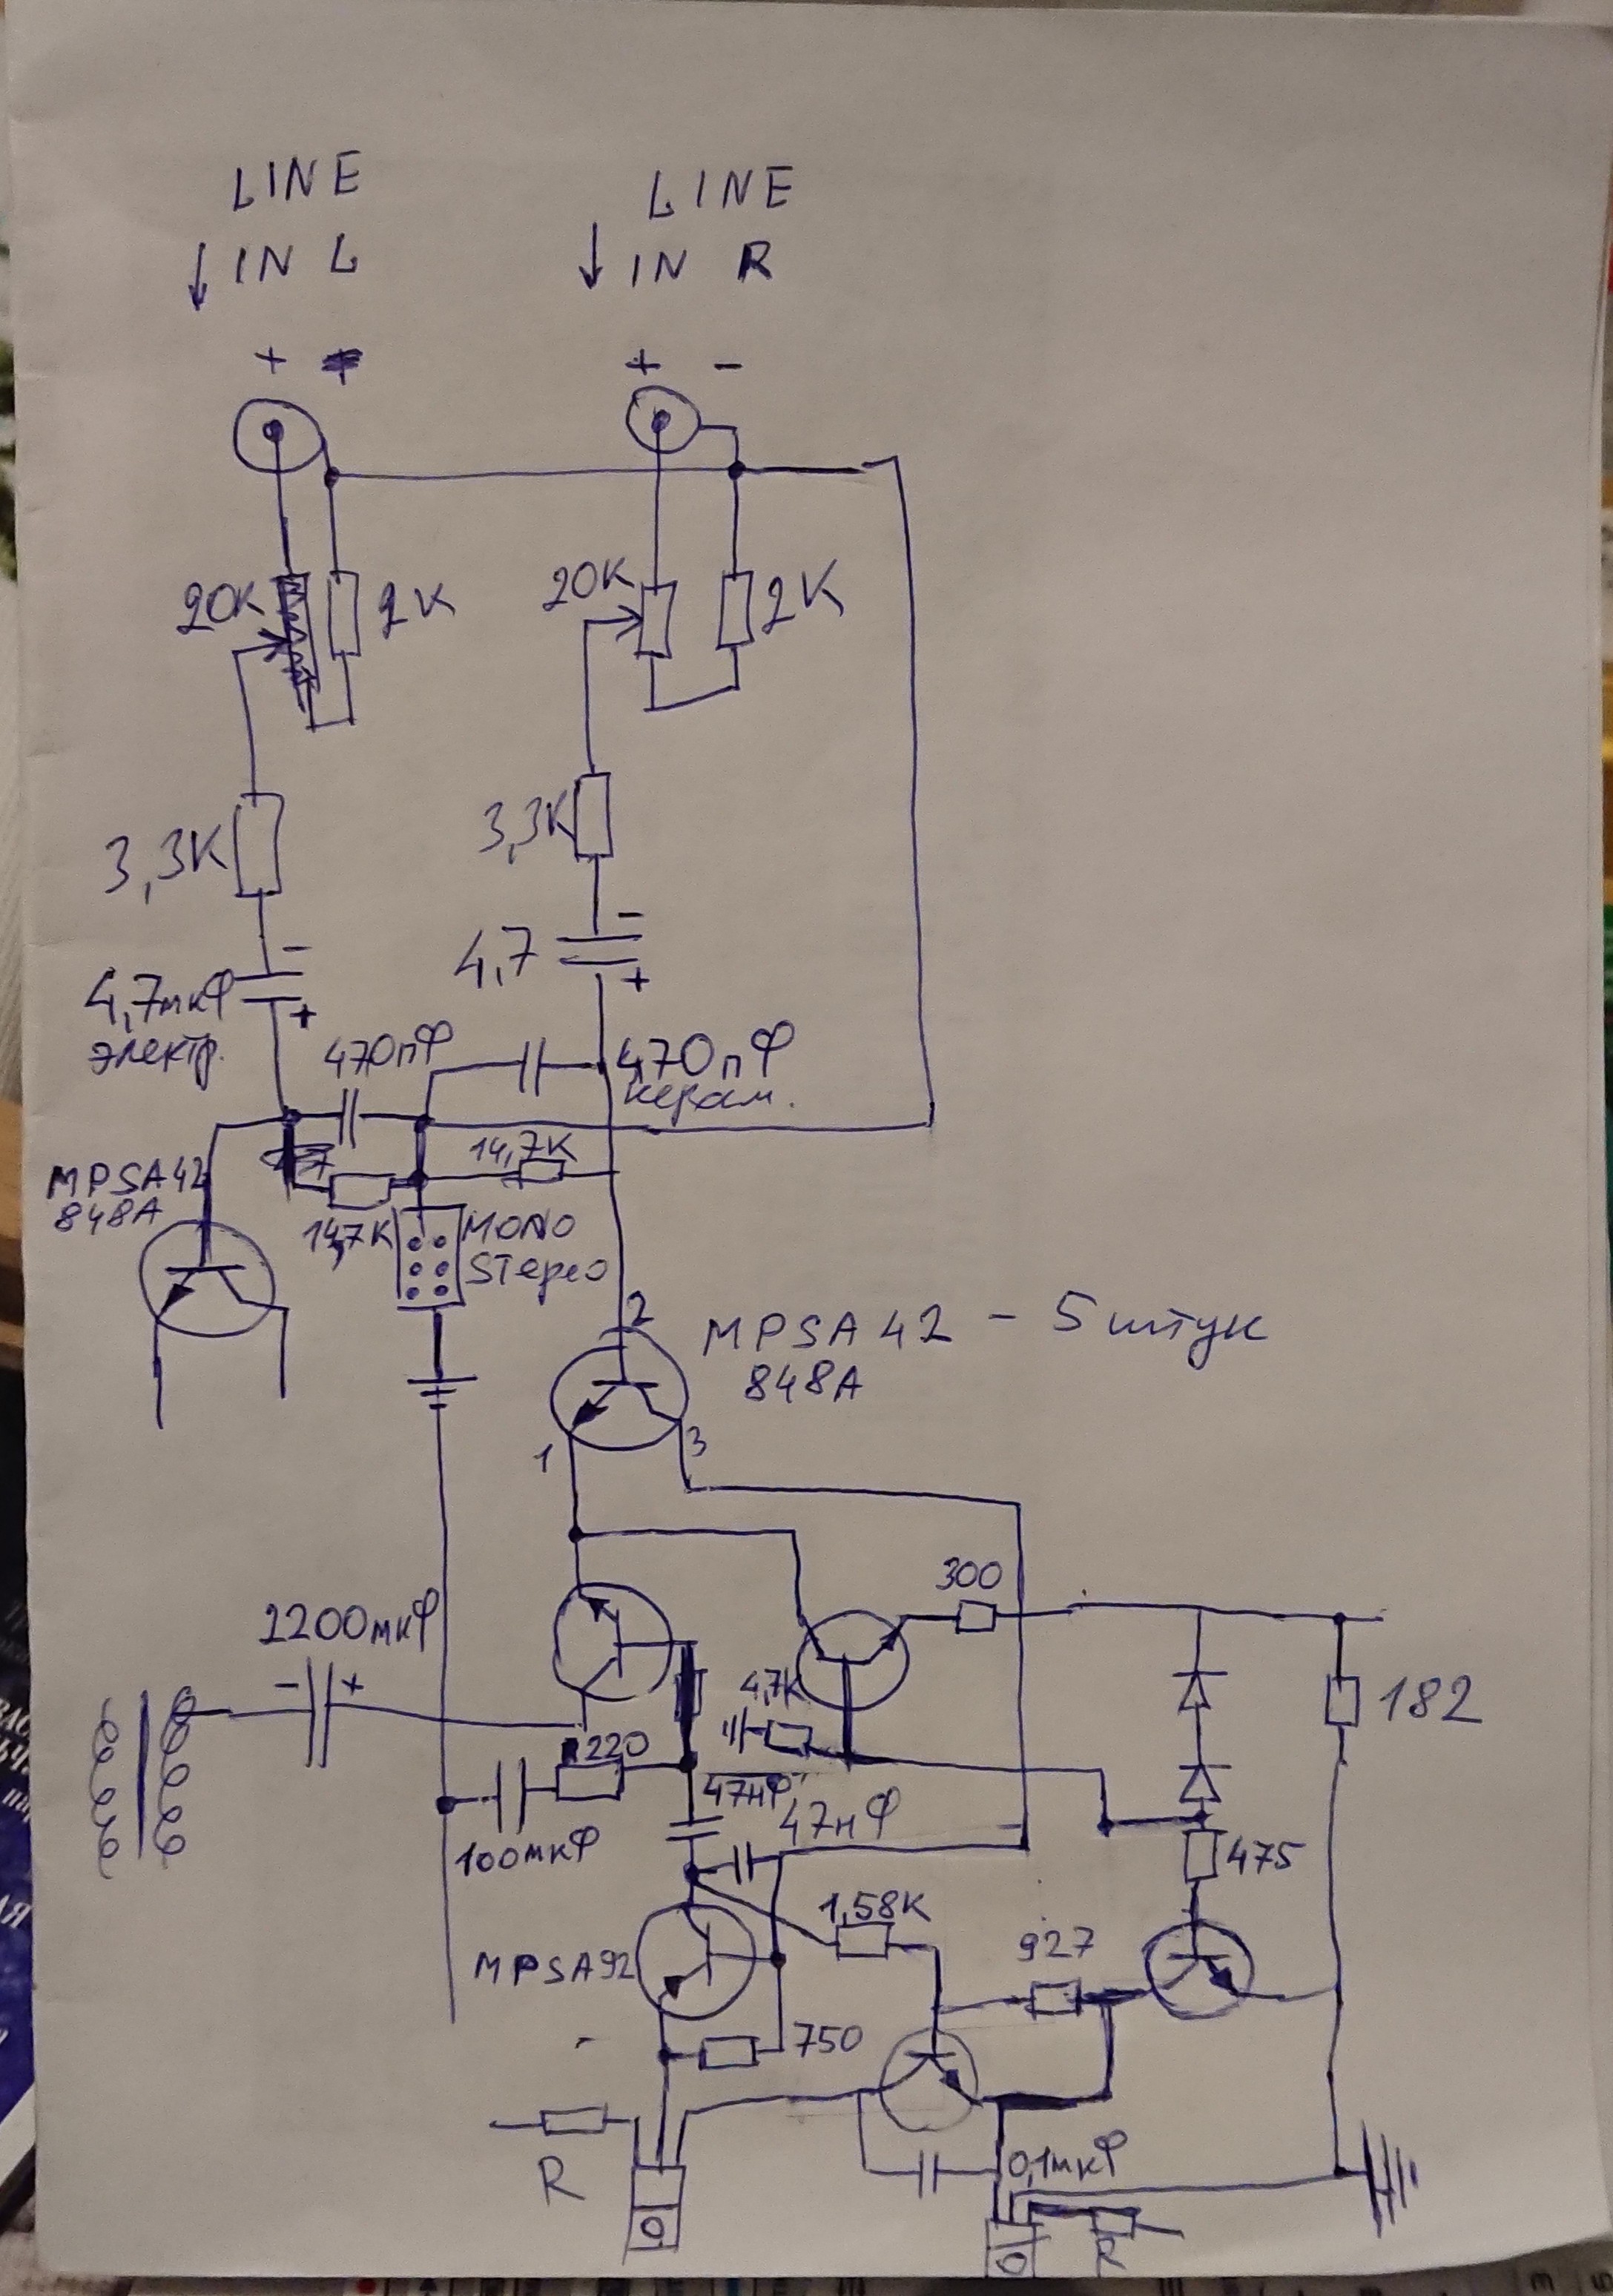 LINE
IN L
LINE
IN R
+
+ -
20К
2К
20К
2К
3,3К
3,3К
-
4,7мкФ
+
электр.
-
4,7
+
470пФ
470пФ
керам.
MPSA42
848A
14,7К
14,7К
MONO
Stereo
2
MPSA42 - 5 штук
848A
1
3
300
2200мкФ
- +
4,7К
182
220
47нФ
47нФ
100мкФ
475
1,58К
927
MPSA92
750
R
0,1мкФ
R